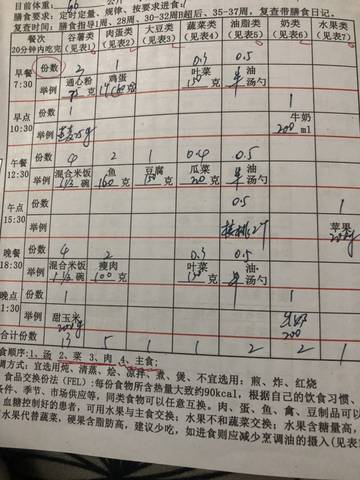 目前体重:
要求: 定时定量、规律、按要求进食;
复查时间: 膳食指导1周、28周、30-32周B超后、35-37周。复查带膳食日记。
餐次 谷薯类 肉类 大豆类 蔬菜类 油脂类 奶类 水果类
20分钟内吃完 (见表1) (见表2) (见表3) (见表4) (见表5) (见表6) (见表7)
早餐 份数 3 1 0.3 0.5
7:30 举例 通心粉 75克 鸡蛋 1个60克 叶菜 150克 油 半汤勺
早点 份数 1 1
10:30 举例 牛奶 200 ml
午餐 份数 4 2 1 0.4 0.5
12:30 举例 混合米饭 1 1/3碗 鱼 160克 豆腐 150克 瓜菜 200克 油 半汤勺
午点 份数 0.5 1
15:30 举例 核桃2个 苹果 200g
晚餐 份数 4 2 0.3 0.5
18:30 举例 混合米饭 1 1/3碗 瘦肉 100克 叶菜 150克 油 半汤勺
晚点 份数 1 1
1:30 举例 甜玉米 200g 200
合计份数 13 5 1 1 2 2 1
食顺序:1、汤 2、菜 3、肉 4、主食;
调方式: 宜选用炖、清蒸、烩、凉拌、煮、煲、不宜选用: 煎、炸、红烧
食品交换份法(FEL):每份食物所含热量大致约90kcal, 根据自己的饮食习惯、
条件、季节、市场供应等, 同类食物可以任意互换。肉、蛋、鱼、禽、豆制品可以
血糖控制好的患者, 可用水果与主食交换; 水果不和蔬菜交换; 水果含糖量高,
用水果代替蔬菜, 硬果含脂肪高, 建议少吃, 如进食则应减少烹调油的摄入(见表